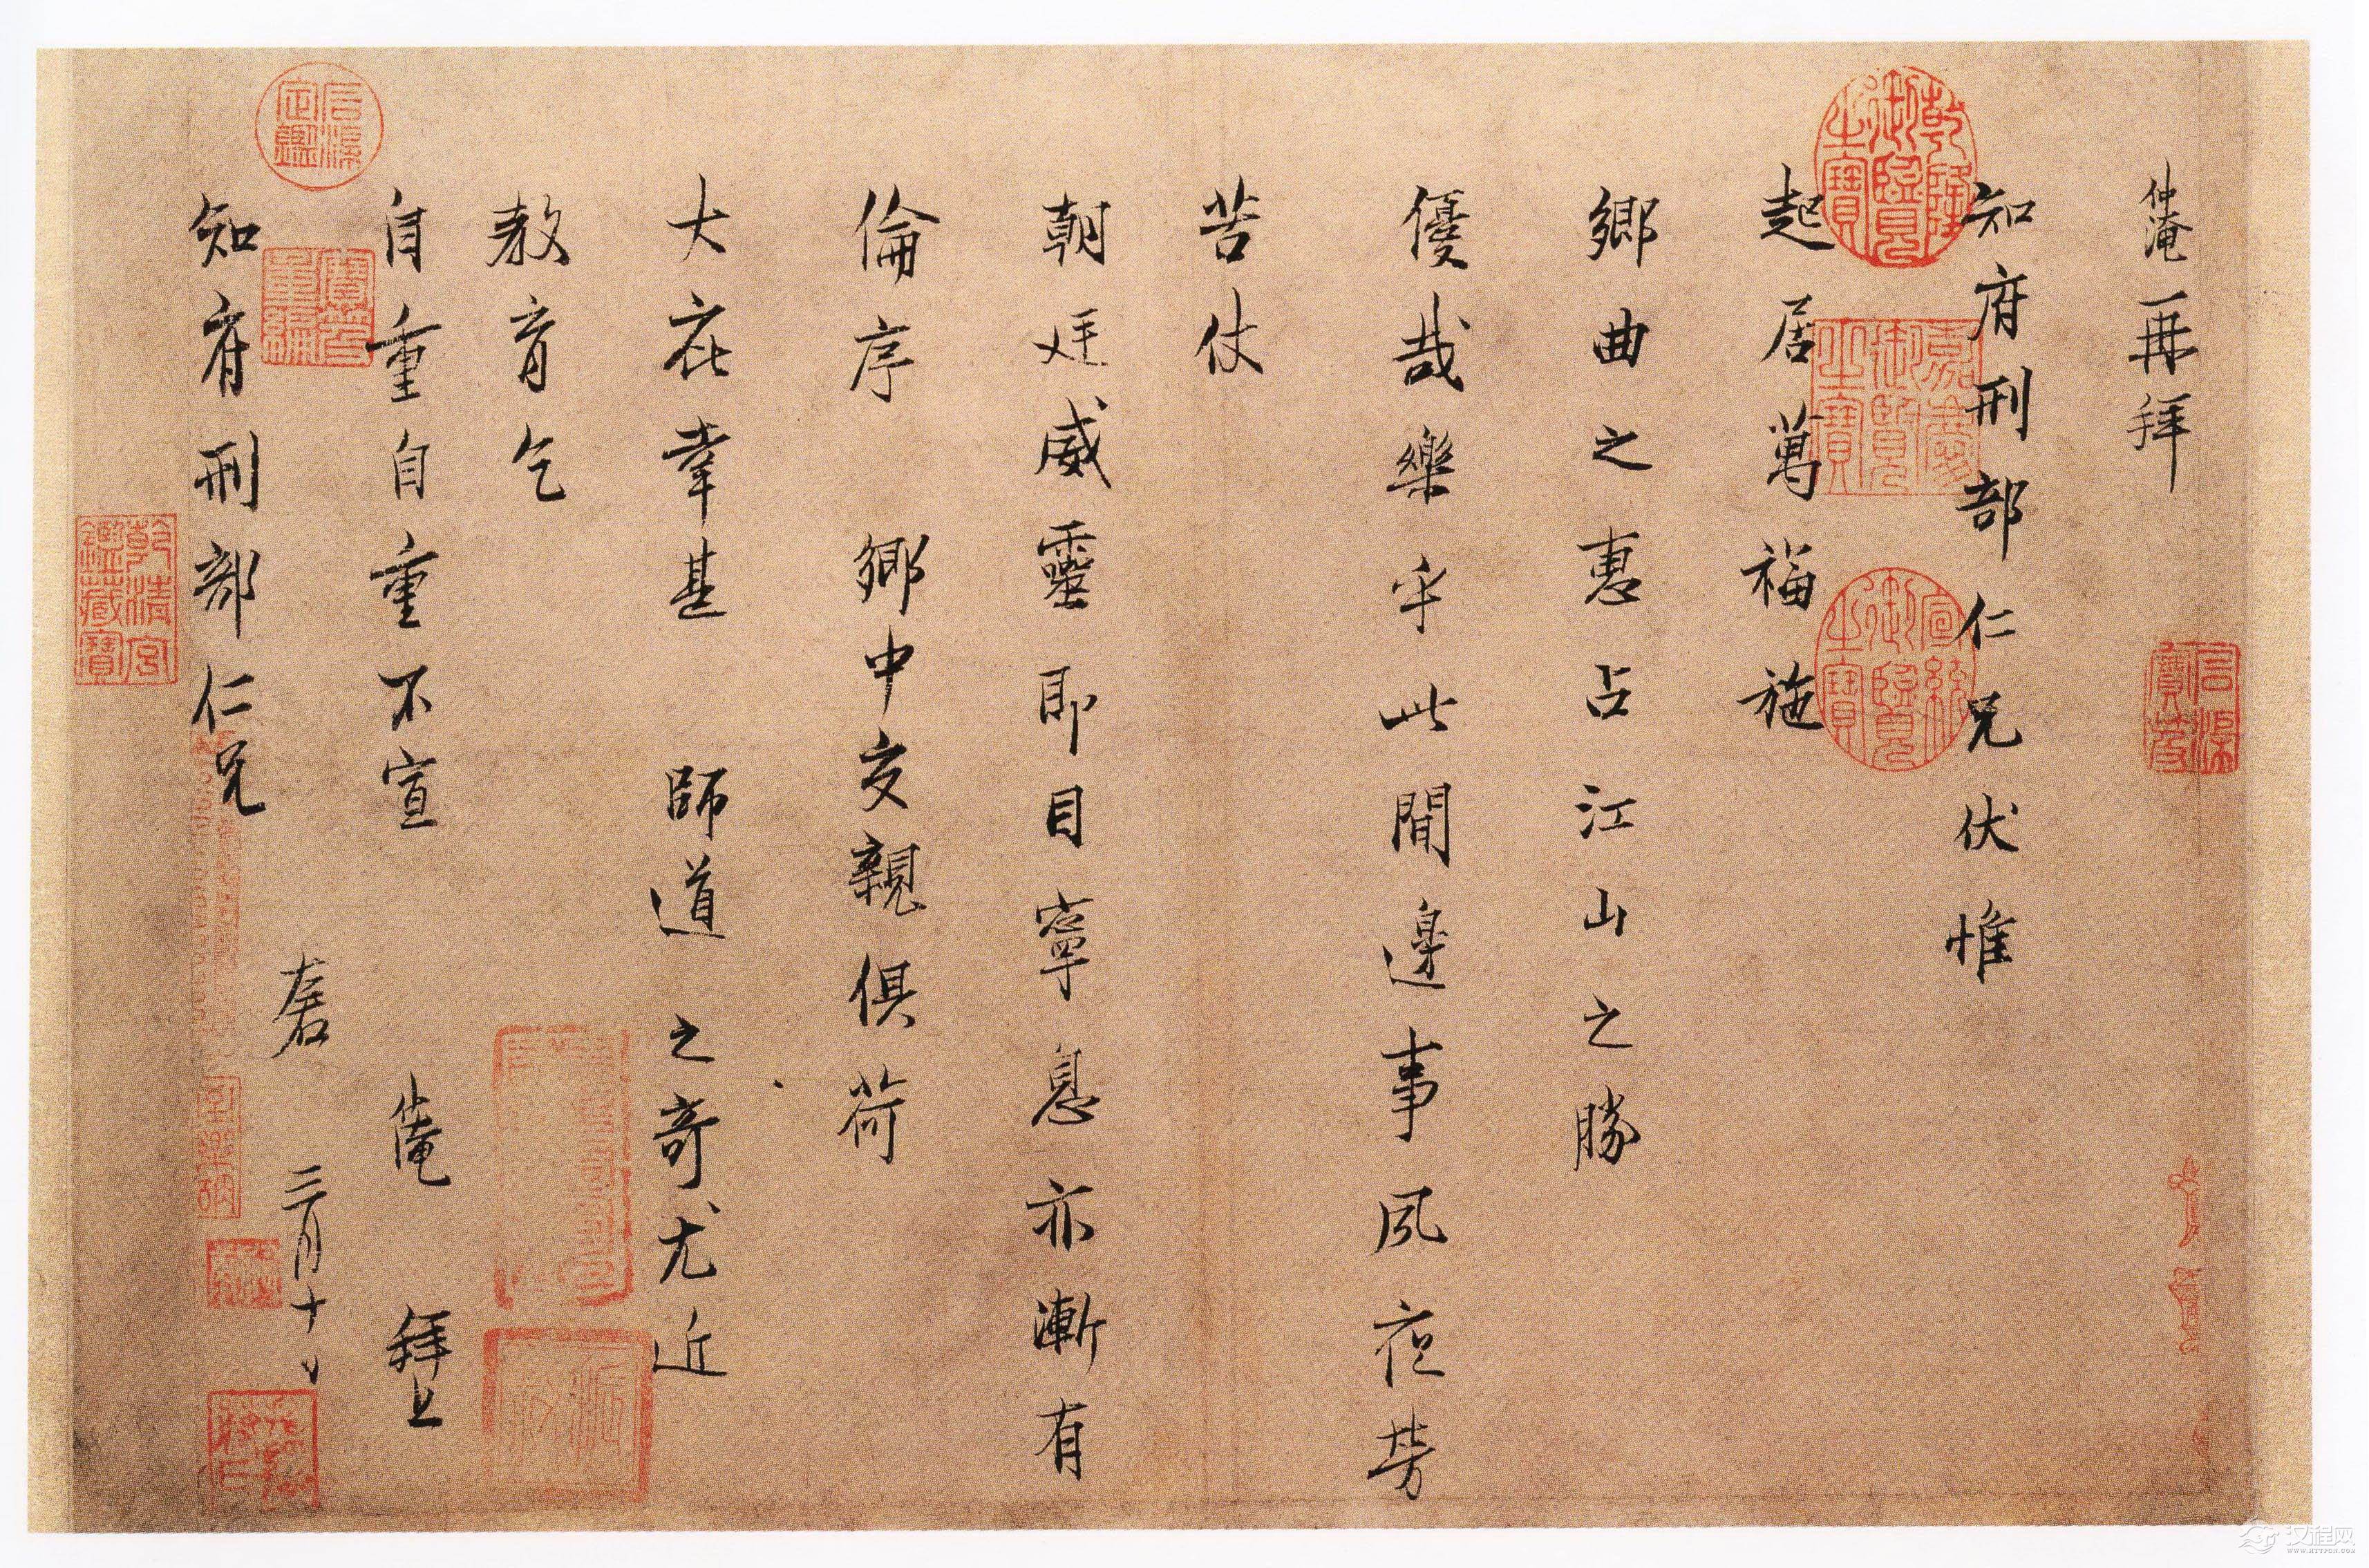 仲淹再拜
知府刑部仁兄伏惟
起居萬福施
鄉曲之惠占江山之勝
優哉樂乎此間邊事夙夜勞
苦仗
朝廷威靈即目寧息亦漸有
倫序 鄉中交親俱荷
大庇幸甚 師道之奇尤近
教育乞
自重自重不宣 仲淹 拜上
知府刑部仁兄
左右 三月十日
乾隆御覽之寶
嘉慶御覽之寶
宣統御覽之寶
石渠寶笈
石渠定鑑
寶笈重編
乾清宮鑑藏寶
汉程网
WWW.HTTPCN.COM